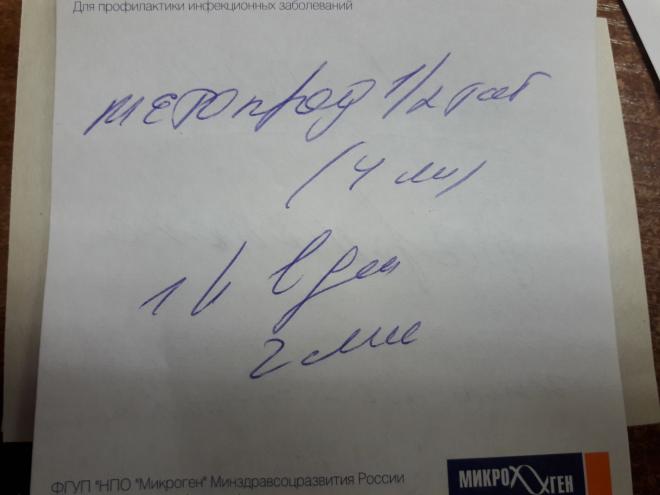 Для профилактики инфекционных заболеваний
метопрод 1/2 таб
(4
1 в ден
2
ФГУП "НПО "Микроген" Минздравсоцразвития России
МИКРОГЕН